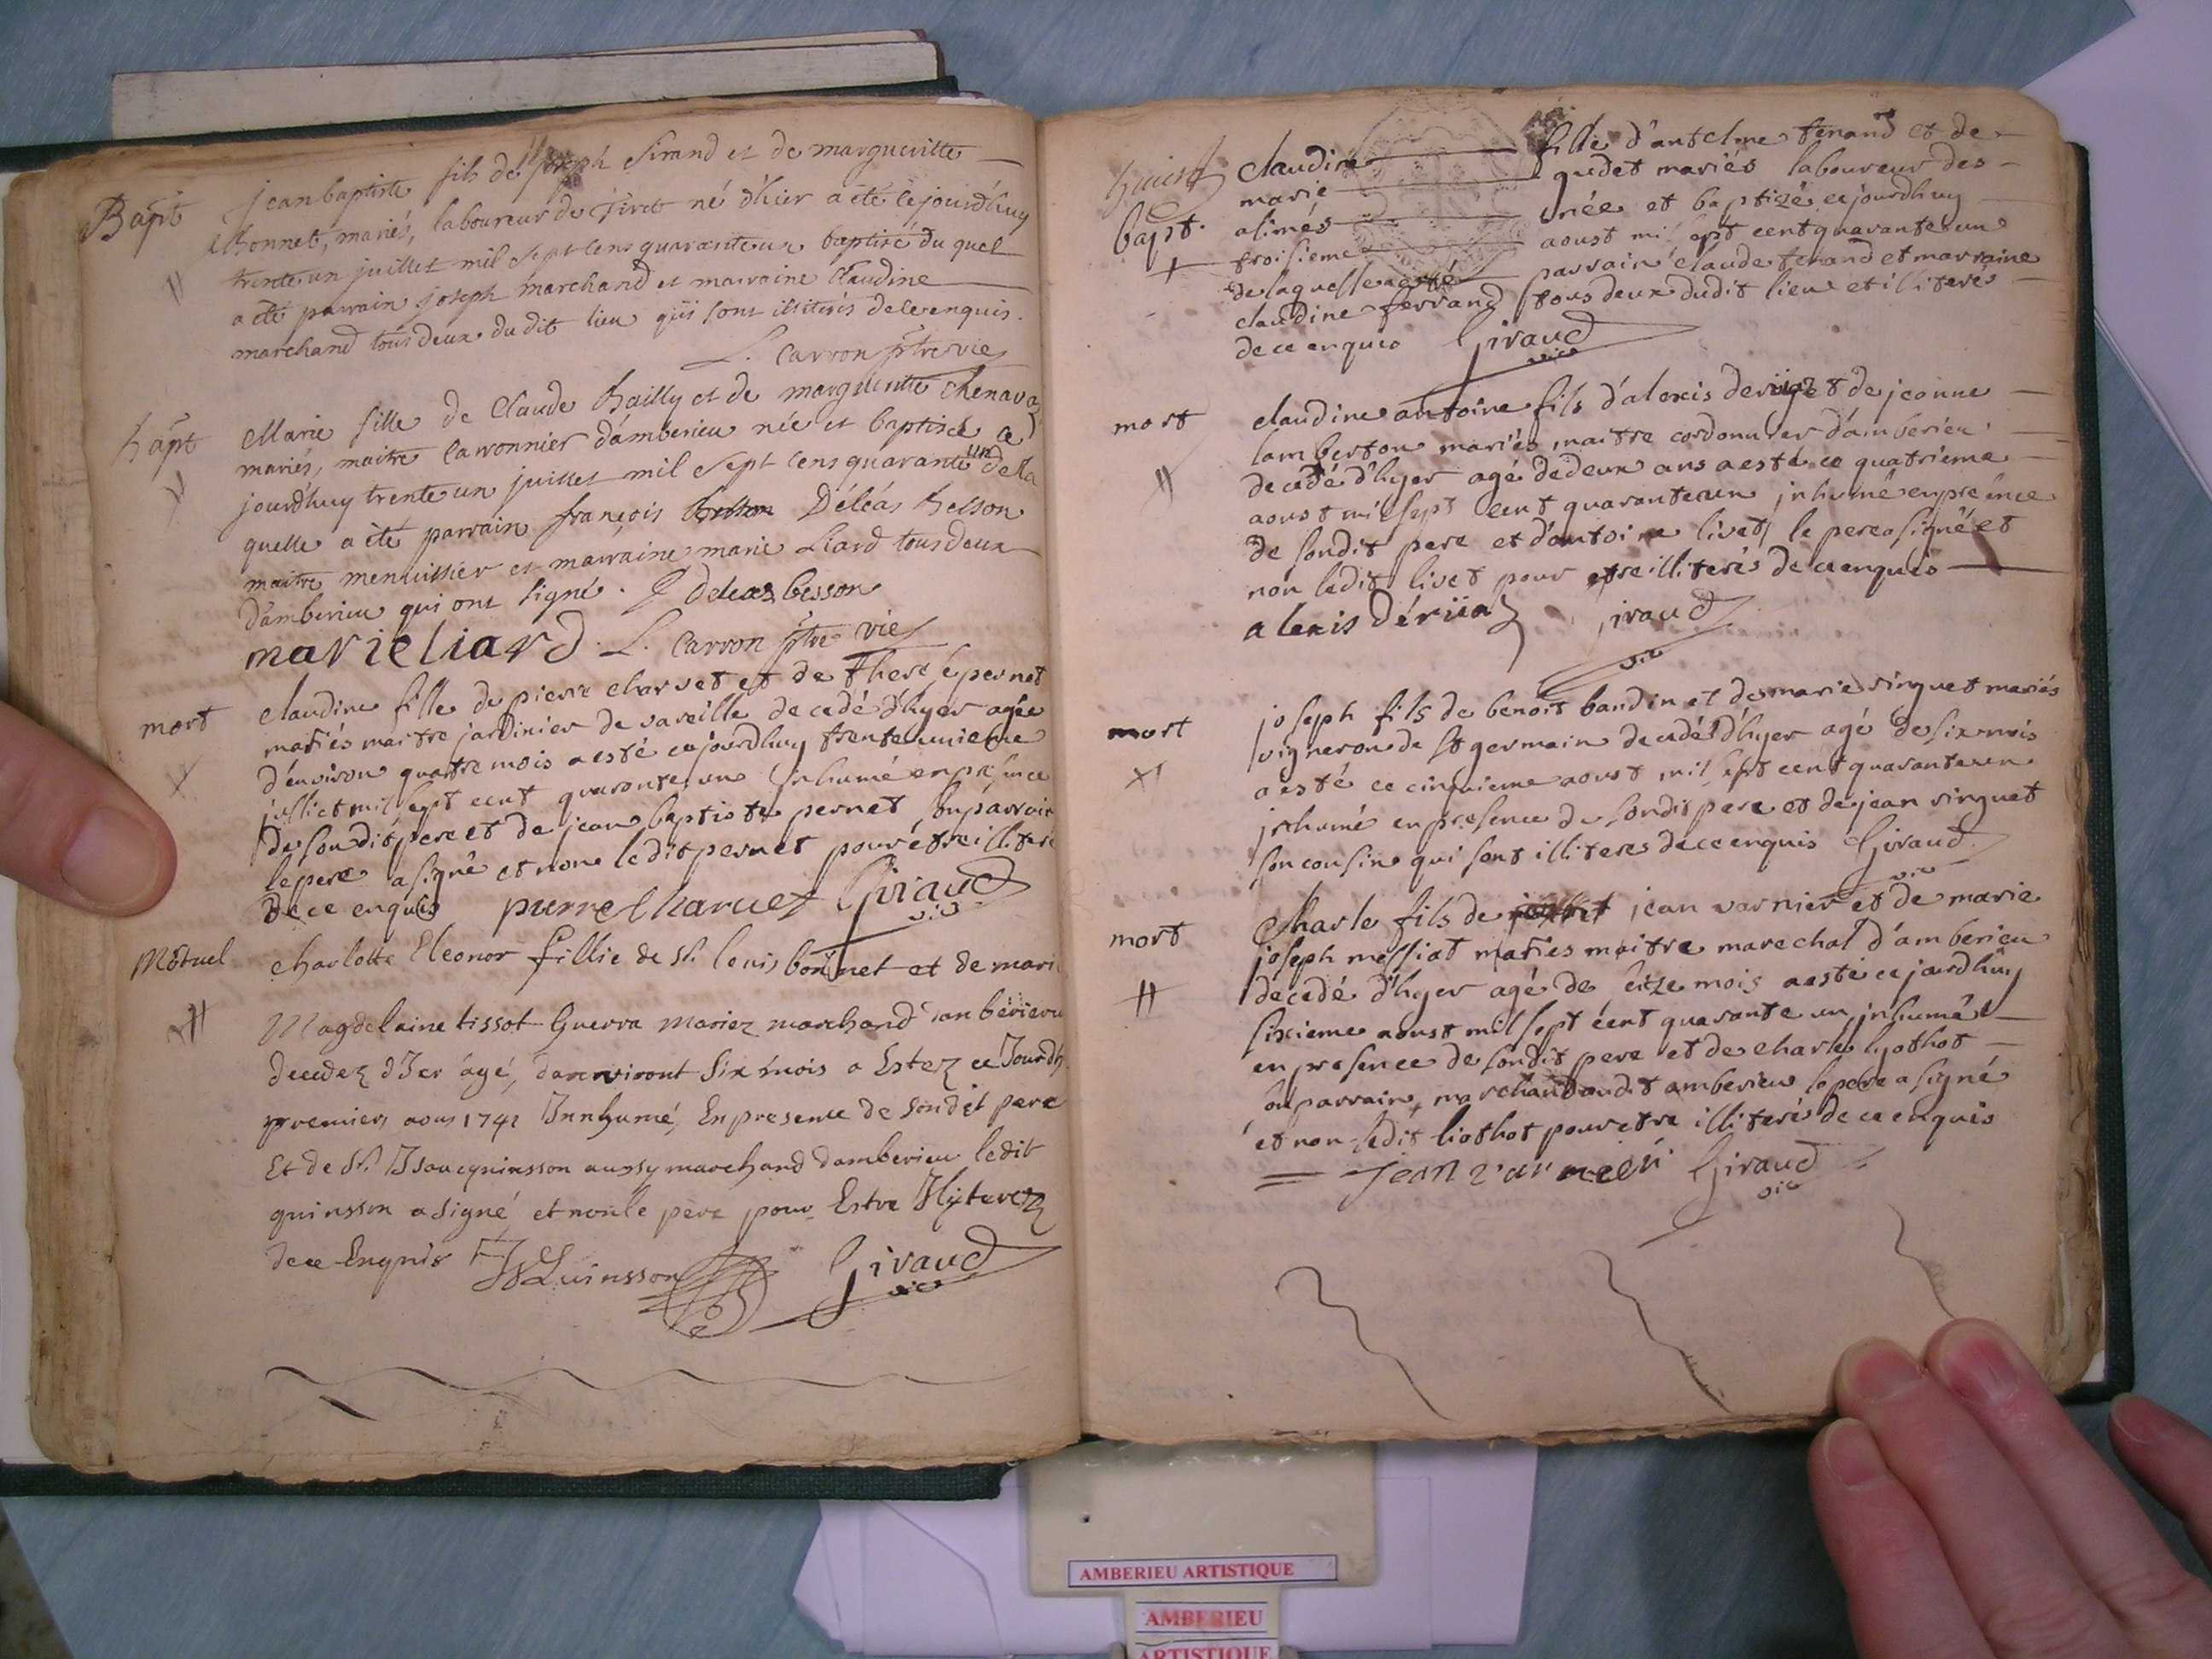 Bapt
jeanbaptiste fils de joseph Sirand et de margueritte
Bonnet, mariés, laboureur de Tiret né d'hier a été cejourdhuy
trente un juillet mil sept cens quarante un baptisé du quel
a été parrain joseph marchand et marraine Claudine
marchand tous deux du dit lieu qui sont illiterés de ce enquis.
L. Carron ptre vic
bapt
Marie fille de Claude Bailly et de margueritte chenava
mariés, maitre Carronnier d'amberieu née et baptisée ce
jourd'huy trente un juillet mil sept cens quarante un de la
quelle a été parrain françois Déléas besson
maitre menuissier et marraine marie Liard tous deux
d'amberieu qui ont signé. f deleas besson
marie liard. L. Carron ptre vic
mort
claudine fille de pierre charvet et de therese pernet
mariés maitre jardinier de vareille decedé d'hyer agée
d'environ quatre mois a esté cejourdhuy trente unieme
julliet mil sept cent quarante un inhumé en presence
de sondit pere et de jean baptiste pernet son parrain
le pere a signé et non ledit pernet pour être illiteré
de ce enquis pierre Charvet Giraud
vic
Mortuel
charlotte Eleonor fillie de Sr. louis bonnet et de mari
Magdelaine tissot Guerra mariez marchand dan berieru
decedez d'Ier âgé, danviront Six mois a Estez ce Jourdh
premiers aous 1741 Innhumé, En presence de Sondit pere
Et de Sr. Isaucquinsson aussy marchand damberieu ledit
quinsson a signé et non le pere pour Estre Illyterez
de ce Enquis JsQuinsson Giraud
vic
bapt.
claudine fille d'antelme tenand et de
marie gudet mariés laboureur des
alimés née et baptizé cejourdhuy
troisieme aoust mil sept cent quarante un
de laquelle a esté parrain claude tenand et marraine
claudine ferrand tous deux dudit lieu et illiterés
de ce enquis Giraud
vic
mort
claudine antoine fils d'alexis deriiaz et de jeanne
lamberton mariés maitre cordonnier d'amberieu
decedé d'hyer agé de deux ans a esté ce quatrieme
aoust mil sept cent quarante un inhumé en presence
de sondit pere et d'antoine livet, le pere a signé et
non ledit livet pour etre illiterés de ce enquis
alexis dériiaz Giraud
vic
mort
joseph fils de benoit baudin et de marie vinguet mariés
vigneron de St germain decedé d'hyer agé de six mois
a esté ce cinquieme aoust mil sept cent quarante un
inhumé en presence de sondit pere et de jean vinguet
son cousin qui sont illiteres de ce enquis Giraud
vic
mort
Charle fils de jean varnier et de marie
joseph messiat mariés maitre marechal d'amberieu
decedé d'hyer agé de seize mois a esté ce jourdhuy
sixieme aoust mil sept cent quarante un inhumé
en presence de sondit pere et de charle liothot
son parrain, marchand audit amberieu le pere a signé
et non ledit liothot pour etre illiteré de ce enquis
Jean Giraud
vic
AMBERIEU ARTISTIQUE
AMBERIEU
ARTISTIQUE